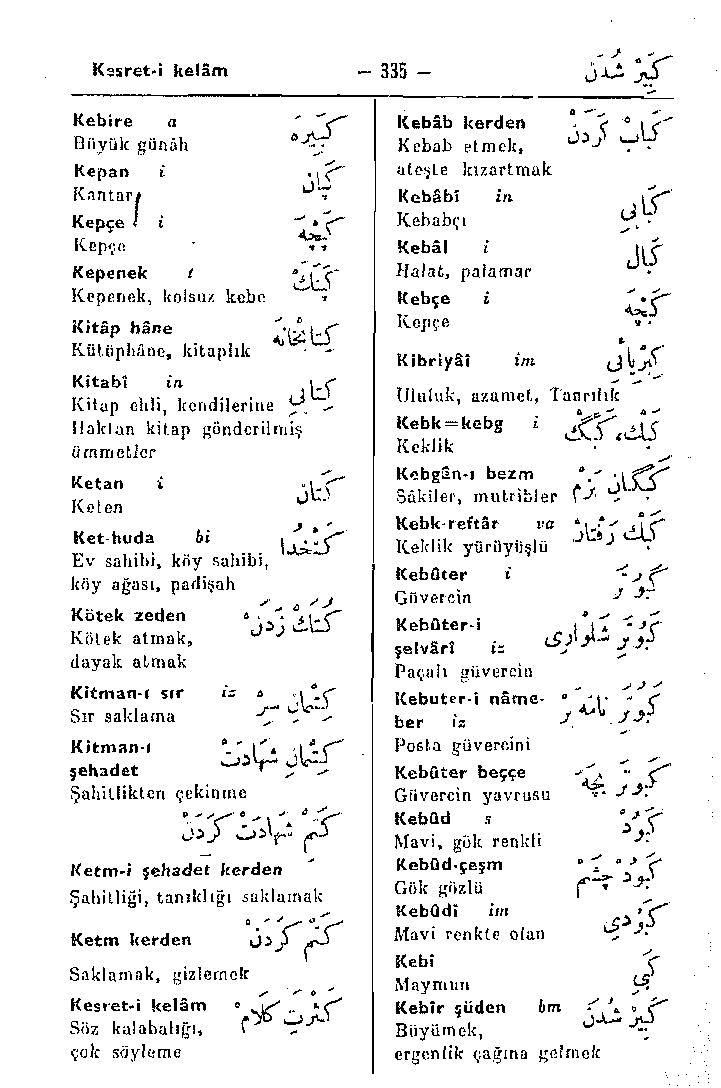 Kesret-i kelâm — 335 — كَبِيرْ شُدَنْ
Kebire a كَبِيرَه
Büyük günâh
Kepan i كَپَان
Kantar
Kepçe i كَپْچَه
Kepçe
Kepenek i كَپَنَكْ
Kepenek, kolsuz kebe
Kitâp hâne كِتَابْخَانَه
Kütüphâne, kitaplık
Kitabî in كِتَابِى
Kitap ehli, kendilerine
Haktan kitap gönderilmiş
ümmetler
Ketan i كَتَان
Keten
Ket-huda bi كَتْخُدَا
Ev sahibi, köy sahibi,
köy ağası, padişah
Kötek zeden كُتَكْ زَدَنْ
Kötek atmak,
dayak atmak
Kitman-ı sır iz كِتْمَانِ سِرْ
Sır saklama
Kitman-ı كِتْمَانِ شَهَادَتْ
şehadet
Şahitlikten çekinme
كَتْمِ شَهَادَتْ كَرْدَنْ
Ketm-i şehadet kerden
Şahitliği, tanıklığı saklamak
Ketm kerden كَتْم كَرْدَنْ
Saklamak, gizlemek
Kesret-i kelâm كَثْرَتِ كَلَامْ
Söz kalabalığı,
çok söyleme
Kebâb kerden كَبَابْ كَرْدَنْ
Kebab etmek,
ateşte kızartmak
Kebâbî in كَبَابِى
Kebabçı
Kebâl i كَبَال
Halat, palamar
Kebçe i كَبْچَه
Kepçe
Kibriyâî im كِبْرِيَائِى
Ululuk, azamet, Tanrılık
Kebk=kebg i كَبْك، كَبْگ
Keklik
Kebgân-ı bezm كَبْگَانِ بَزْم
Sâkiler, mutribler
Kebk-reftâr va كَبْك رَفْتَارْ
Keklik yürüyüşlü
Kebûter i كَبُوتَر
Güvercin
Kebûter-i كَبُوتَرِ شَلْوَارِى
şelvârî iz
Paçalı güvercin
Kebuter-i nâme- كَبُوتَرِ نَامَه بَرْ
ber iz
Posta güvercini
Kebûter beççe كَبُوتَرْ بَچَّه
Güvercin yavrusu
Kebûd s كَبُودْ
Mavi, gök renkli
Kebûd-çeşm كَبُودْ چَشْم
Gök gözlü
Kebûdî im كَبُودِى
Mavi renkte olan
Kebî كَبِى
Maymun
Kebîr şüden bm كَبِيرْ شُدَنْ
Büyümek,
ergenlik çağına gelmek